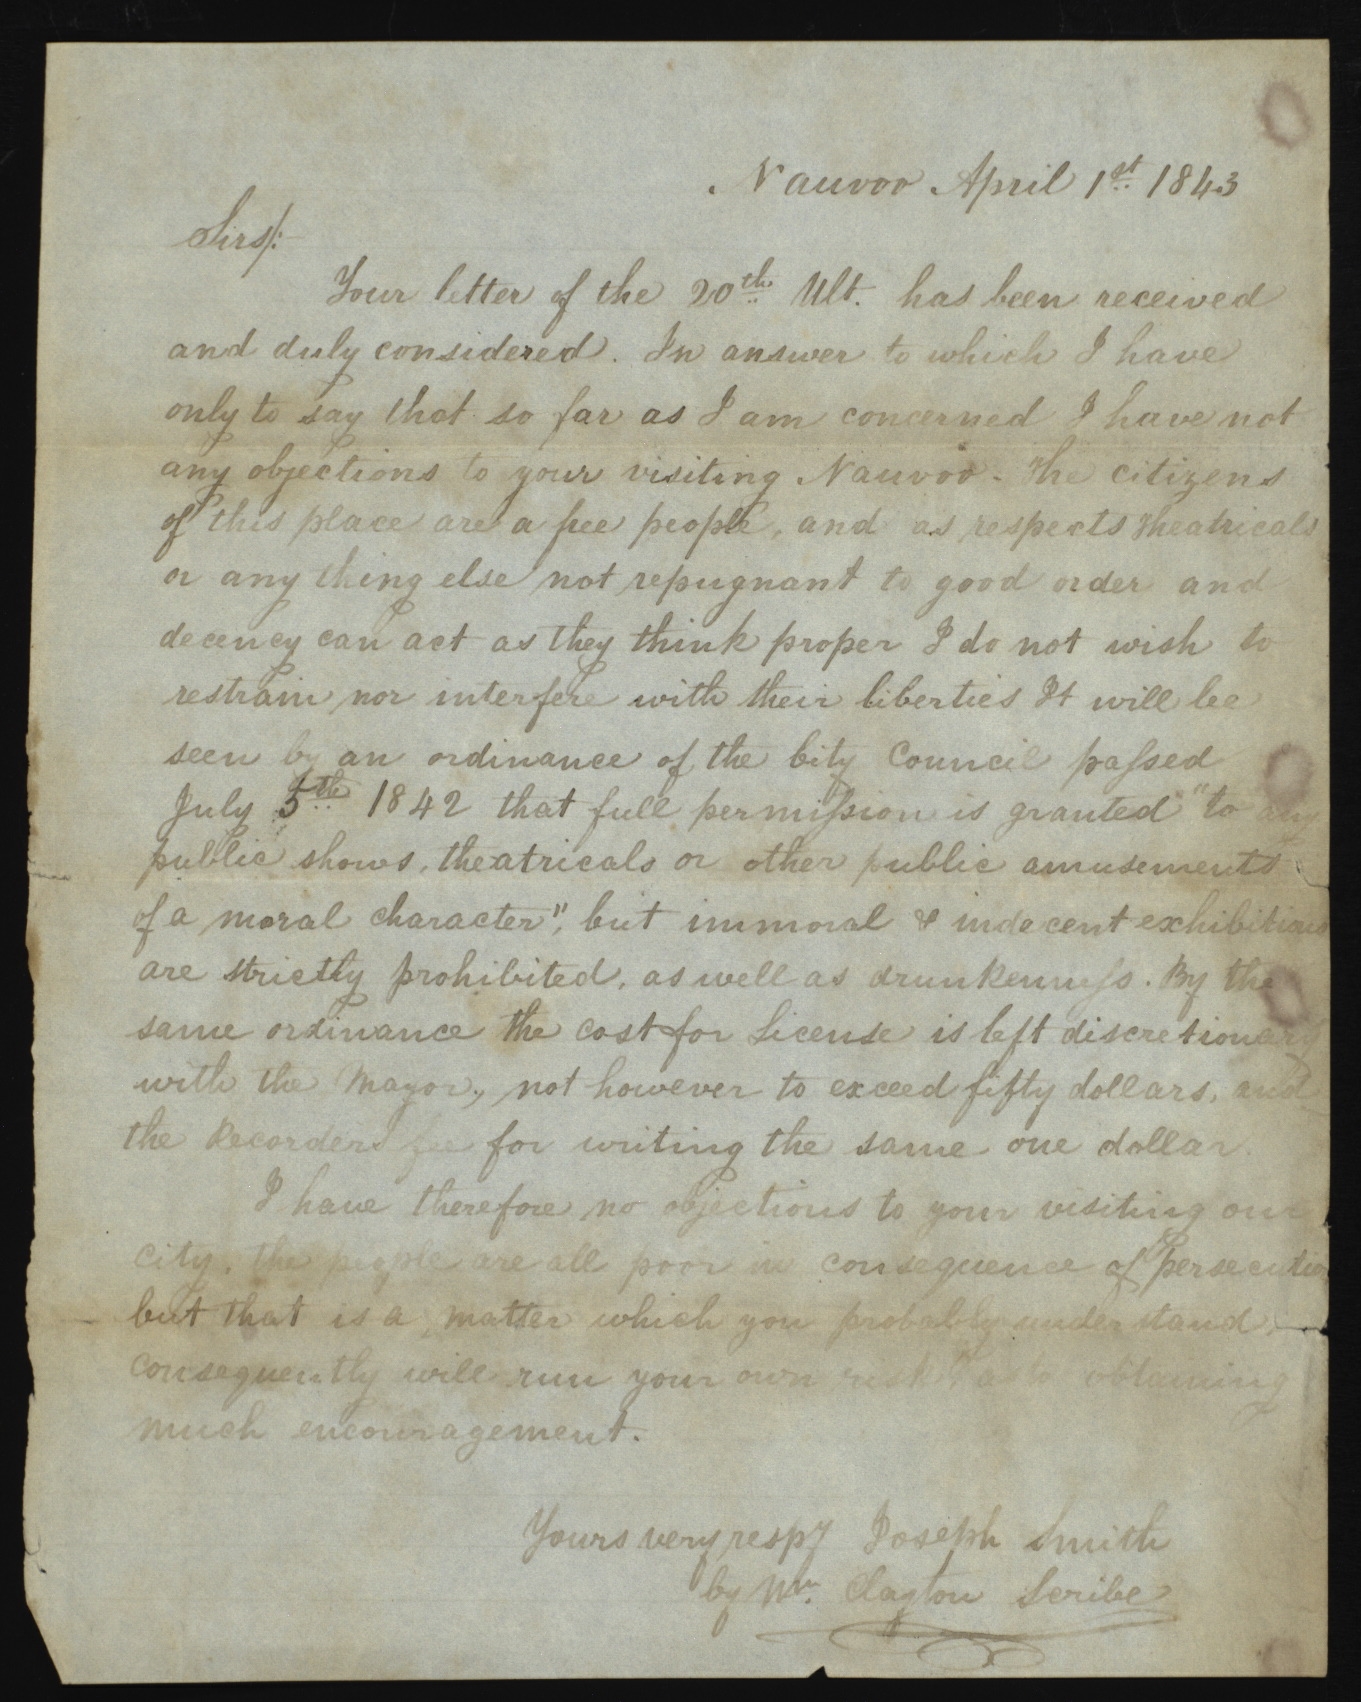 Nauvoo April 1st 1843
Sirs/:
Your letter of the 20th Ult. has been received
and duly considered. In answer to which I have
only to say that so far as I am concerned I have not
any objections to your visiting Nauvoo. The citizens
of this place are a free people, and as respects Theatricals
or any thing else not repugnant to good order and
decency can act as they think proper I do not wish to
restrain nor interfere with their liberties It will be
seen by an ordinance of the City Council passed
July 5th 1842 that full permission is granted "to any
public shows, theatricals or other public amusements
of a moral character", but immoral & indecent exhibitions
are strictly prohibited, as well as drunkenness. By the
same ordinance the cost for License is left discretionary
with the Mayor, not however to exceed fifty dollars, and
the Recorders fee for writing the same one dollar.
I have therefore no objections to your visiting our
city. the people are all poor in consequence of persecution
but that is a matter which you probably understand,
consequently will run your own risk as to obtaining
much encouragement.
Yours very respy Joseph Smith
by Wm. Clayton Scribe